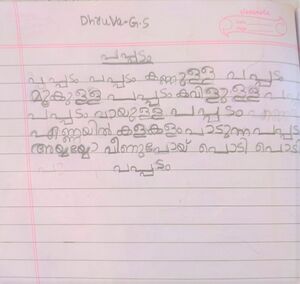 classmate
Dhruva-G.S
പപ്പടം
പപ്പടം പപ്പടം കണ്ണുള്ള പപ്പടം
മൂക്കുള്ള പപ്പടം കവിളുള്ള പപ്പടം
പപ്പടം വായുള്ള പപ്പടം
എണ്ണയിൽ കളകളം പാടുന്ന പപ്പടം
അയ്യയ്യോ വീണുപോയ് പൊടി പൊടി
പപ്പടം